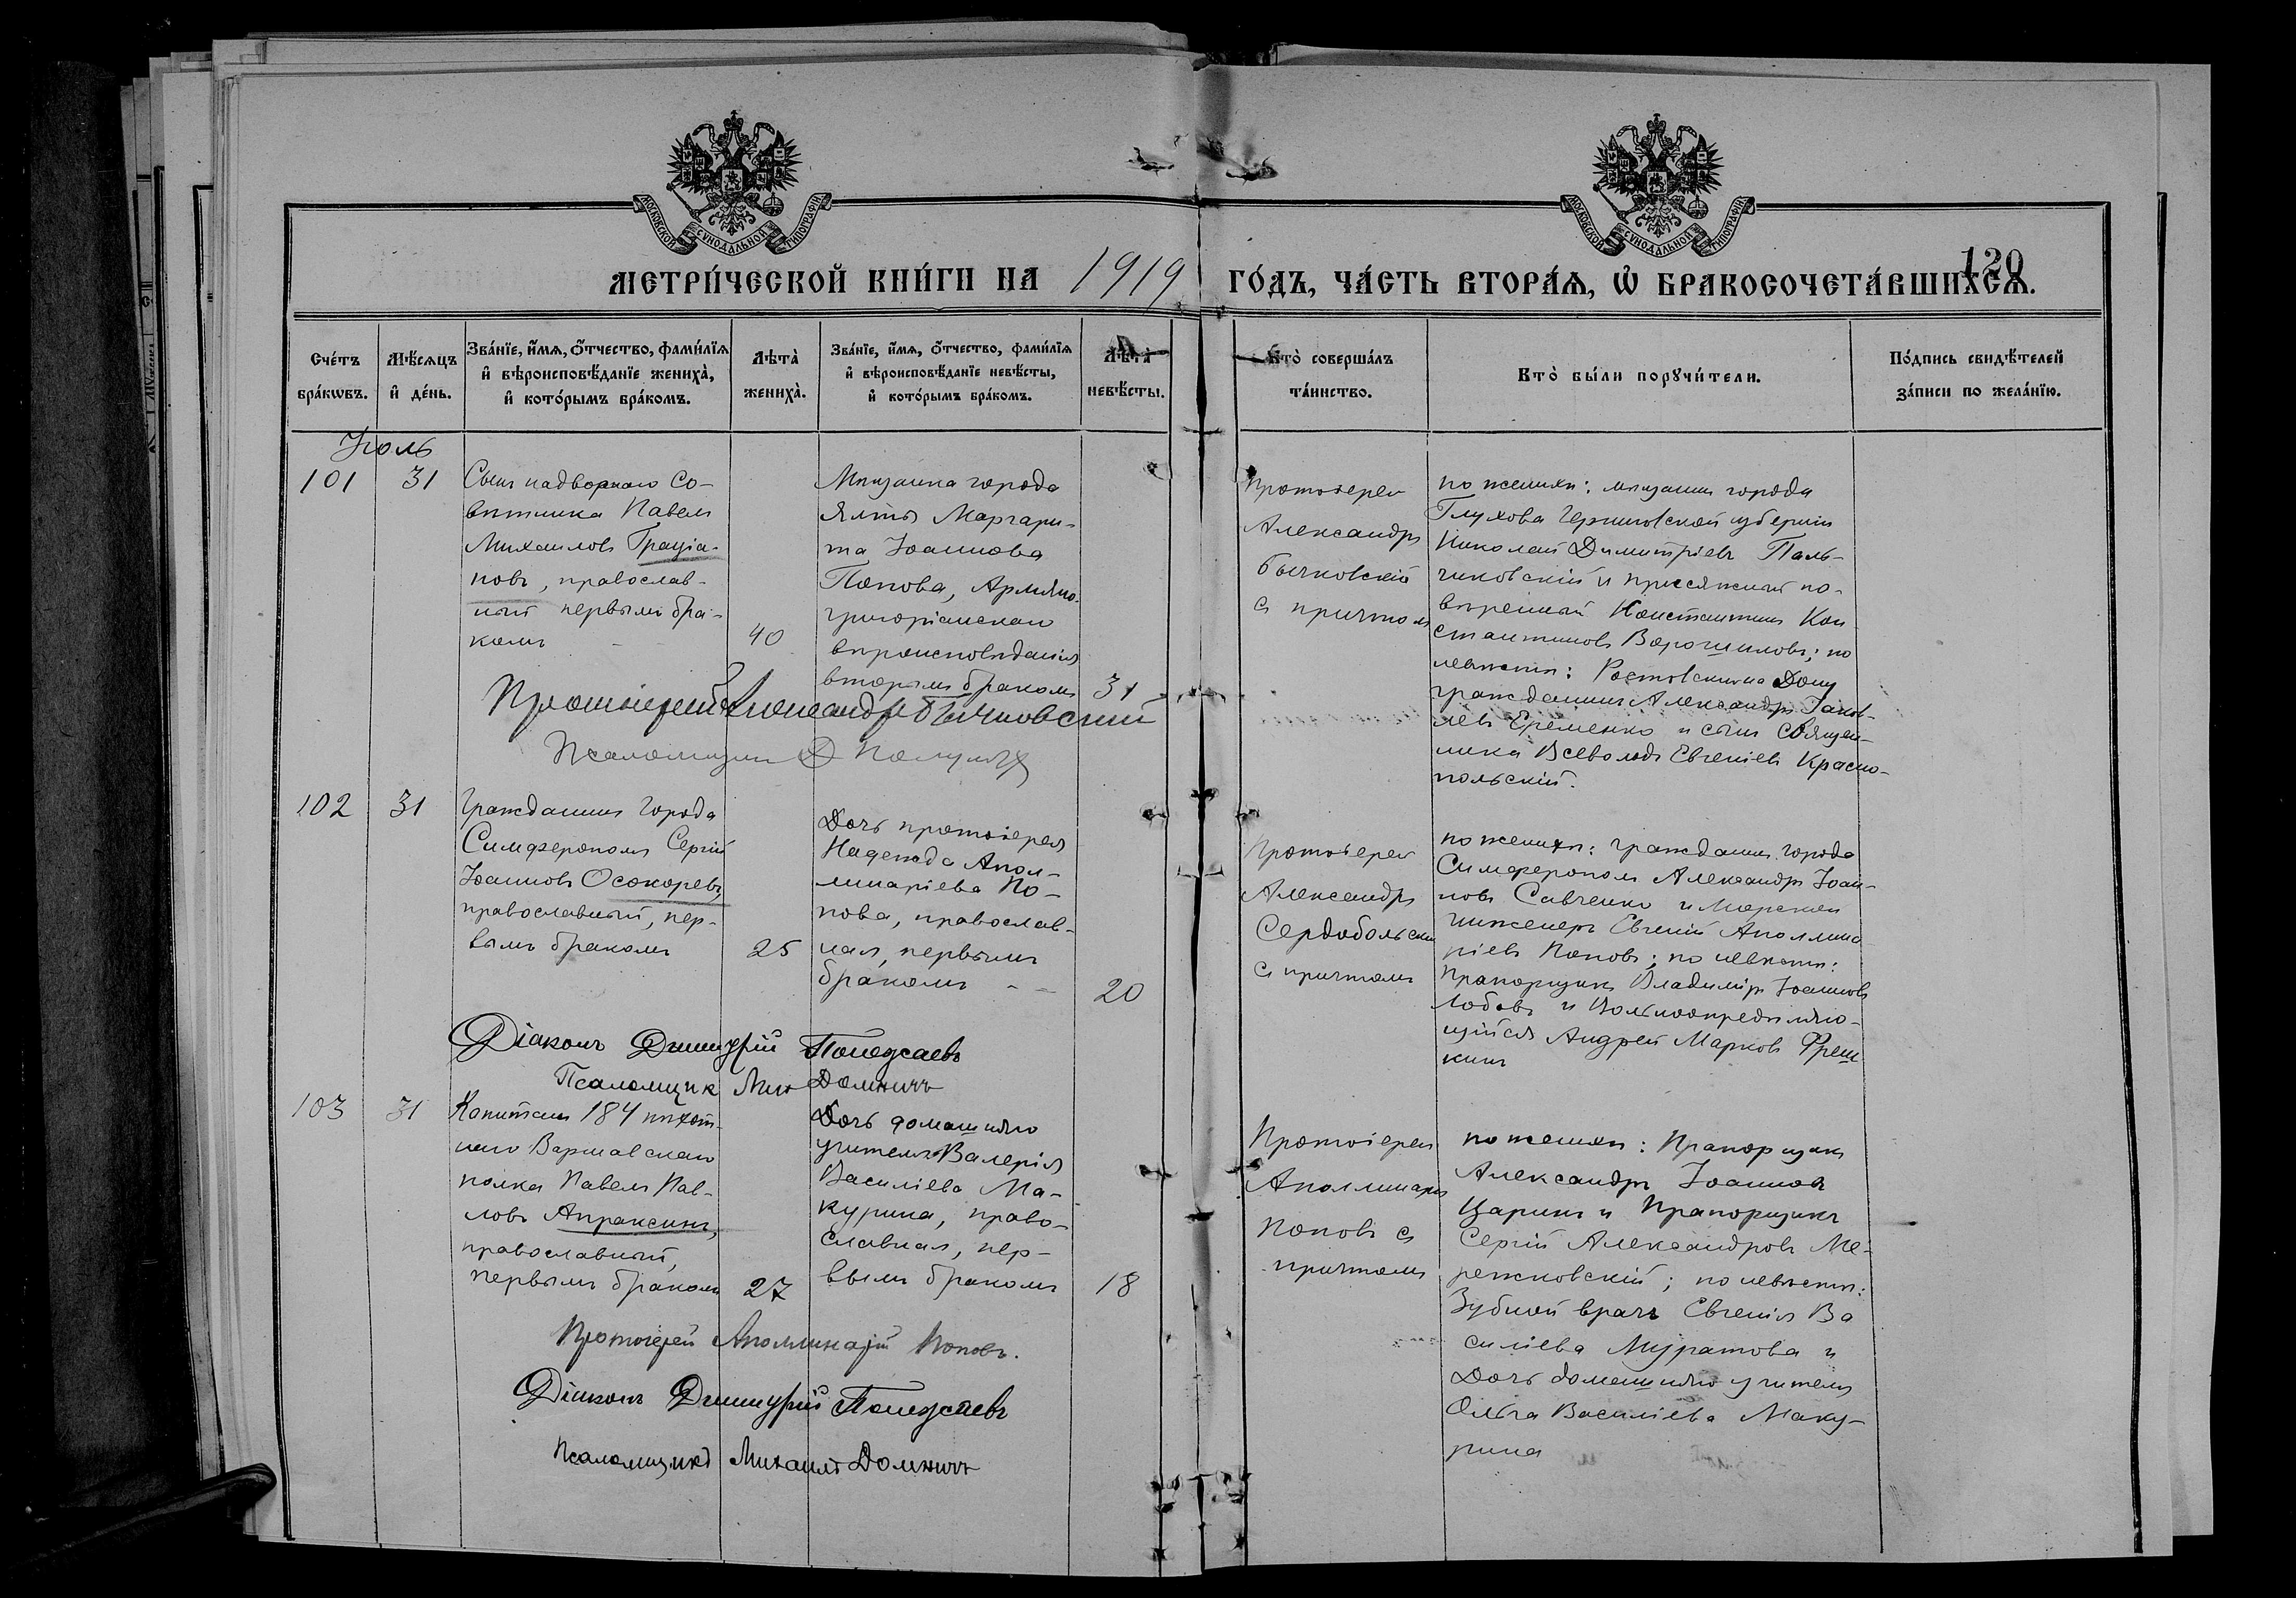 МОСКОВСКОЙ СѴНОДАЛЬНОЙ ТИПОГРАФІИ
МОСКОВСКОЙ СѴНОДАЛЬНОЙ ТИПОГРАФІИ
120
МЕТРИ́ЧЕСКОЙ КНИ́ГИ НА 1919 ГО́ДЪ, ЧА́СТЬ ВТОРА́Ѧ, Ѡ҆ БРАКОСОЧЕТА́ВШИХСѦ.
Сче́тъ бра́кѡвъ.
Мѣ́сѧцъ и҆ де́нь.
Зва́нїе, и҆́мѧ, ѻ҆́тчество, фами́лїѧ и҆ вѣроисповѣ́данїе жениха̀, и҆ кото́рымъ бра́комъ.
Лѣта̀ жениха̀.
Зва́нїе, и҆́мѧ, ѻ҆́тчество, фами́лїѧ и҆ вѣроисповѣ́данїе невѣ́сты, и҆ кото́рымъ бра́комъ.
Лѣта̀ невѣ́сты.
Кто̀ соверша́лъ та́инство.
Кто̀ бы́ли порꙋчи́тели.
По́дпись свидѣ́телей за́писи по жела́нїю.
Іюль
101
31
Сынъ надворнаго Со-
вѣтника Павелъ
Михаиловъ Граціа-
новъ, православ-
ный первымъ бра-
комъ
40
Мѣщанка города
Ялты Маргари-
та Іоаннова
Попова, Армяно-
григоріанскаго
вѣроисповѣданія
вторымъ бракомъ
31
Протоіерей
Александръ
Бычковскій
съ причтомъ
по женихѣ: мѣщанин города
Глухова Черниговской губерніи
Николай Димитріевъ Паль-
чиковскій и присяжный по-
вѣренный Константинъ Кон
стантиновъ Ворошиловъ; по
невѣстѣ: Ростовскій на Дону
гражданинъ Александръ Іаков-
левъ Еременко и сынъ Священ-
ника Всеволодъ Евгеніевъ Красно-
польскій.
Протоіерей Александръ Бычковскій
Псаломщикъ
102
31
Гражданинъ города
Симферополя Сергій
Іоанновъ Осокоревъ,
православный, пер-
вымъ бракомъ
25
Дочь протоіерея
Надежда Апол-
линаріева По-
пова, православ-
ная, первымъ
бракомъ
20
Протоіерей
Александръ
Сердобольскій
съ причтомъ
по женихѣ: гражданин города
Симферополя Александръ Іоан-
новъ Савченко и Морской
инженеръ Евгеній Аполлина
ріевъ Поповъ; по невѣстѣ:
Прапорщикъ Владиміръ Іоанновъ
Лобовъ и Вольноопредѣляю-
щійся Андрей Марковъ Фреш
кинъ
Діаконъ Димитрій
Псаломщикъ Мих Домничъ
103
31
Капитанъ 184 пѣхот-
наго Варшавскаго
полка Павелъ Пав-
ловъ Апраксинъ,
православный,
первымъ бракомъ
27
Дочь домашняго
учителя Валерія
Василіева Ма-
курина, право-
славная, пер-
вымъ бракомъ
18
Протоіерей
Аполлинарій
Поповъ съ
причтомъ
по женихѣ: Прапорщикъ
Александръ Іоанновъ
Царинъ и Прапорщикъ
Сергій Александровъ Ме-
режковскій; по невѣстѣ:
Зубной врачъ Евгенія Ва
силіева Муратова и
Дочь домашняго учителя
Ольга Василіева Маку-
рина
Протоіерей Аполлинарій Поповъ.
Діаконъ Димитрій
Псаломщикъ Михаилъ Домничъ